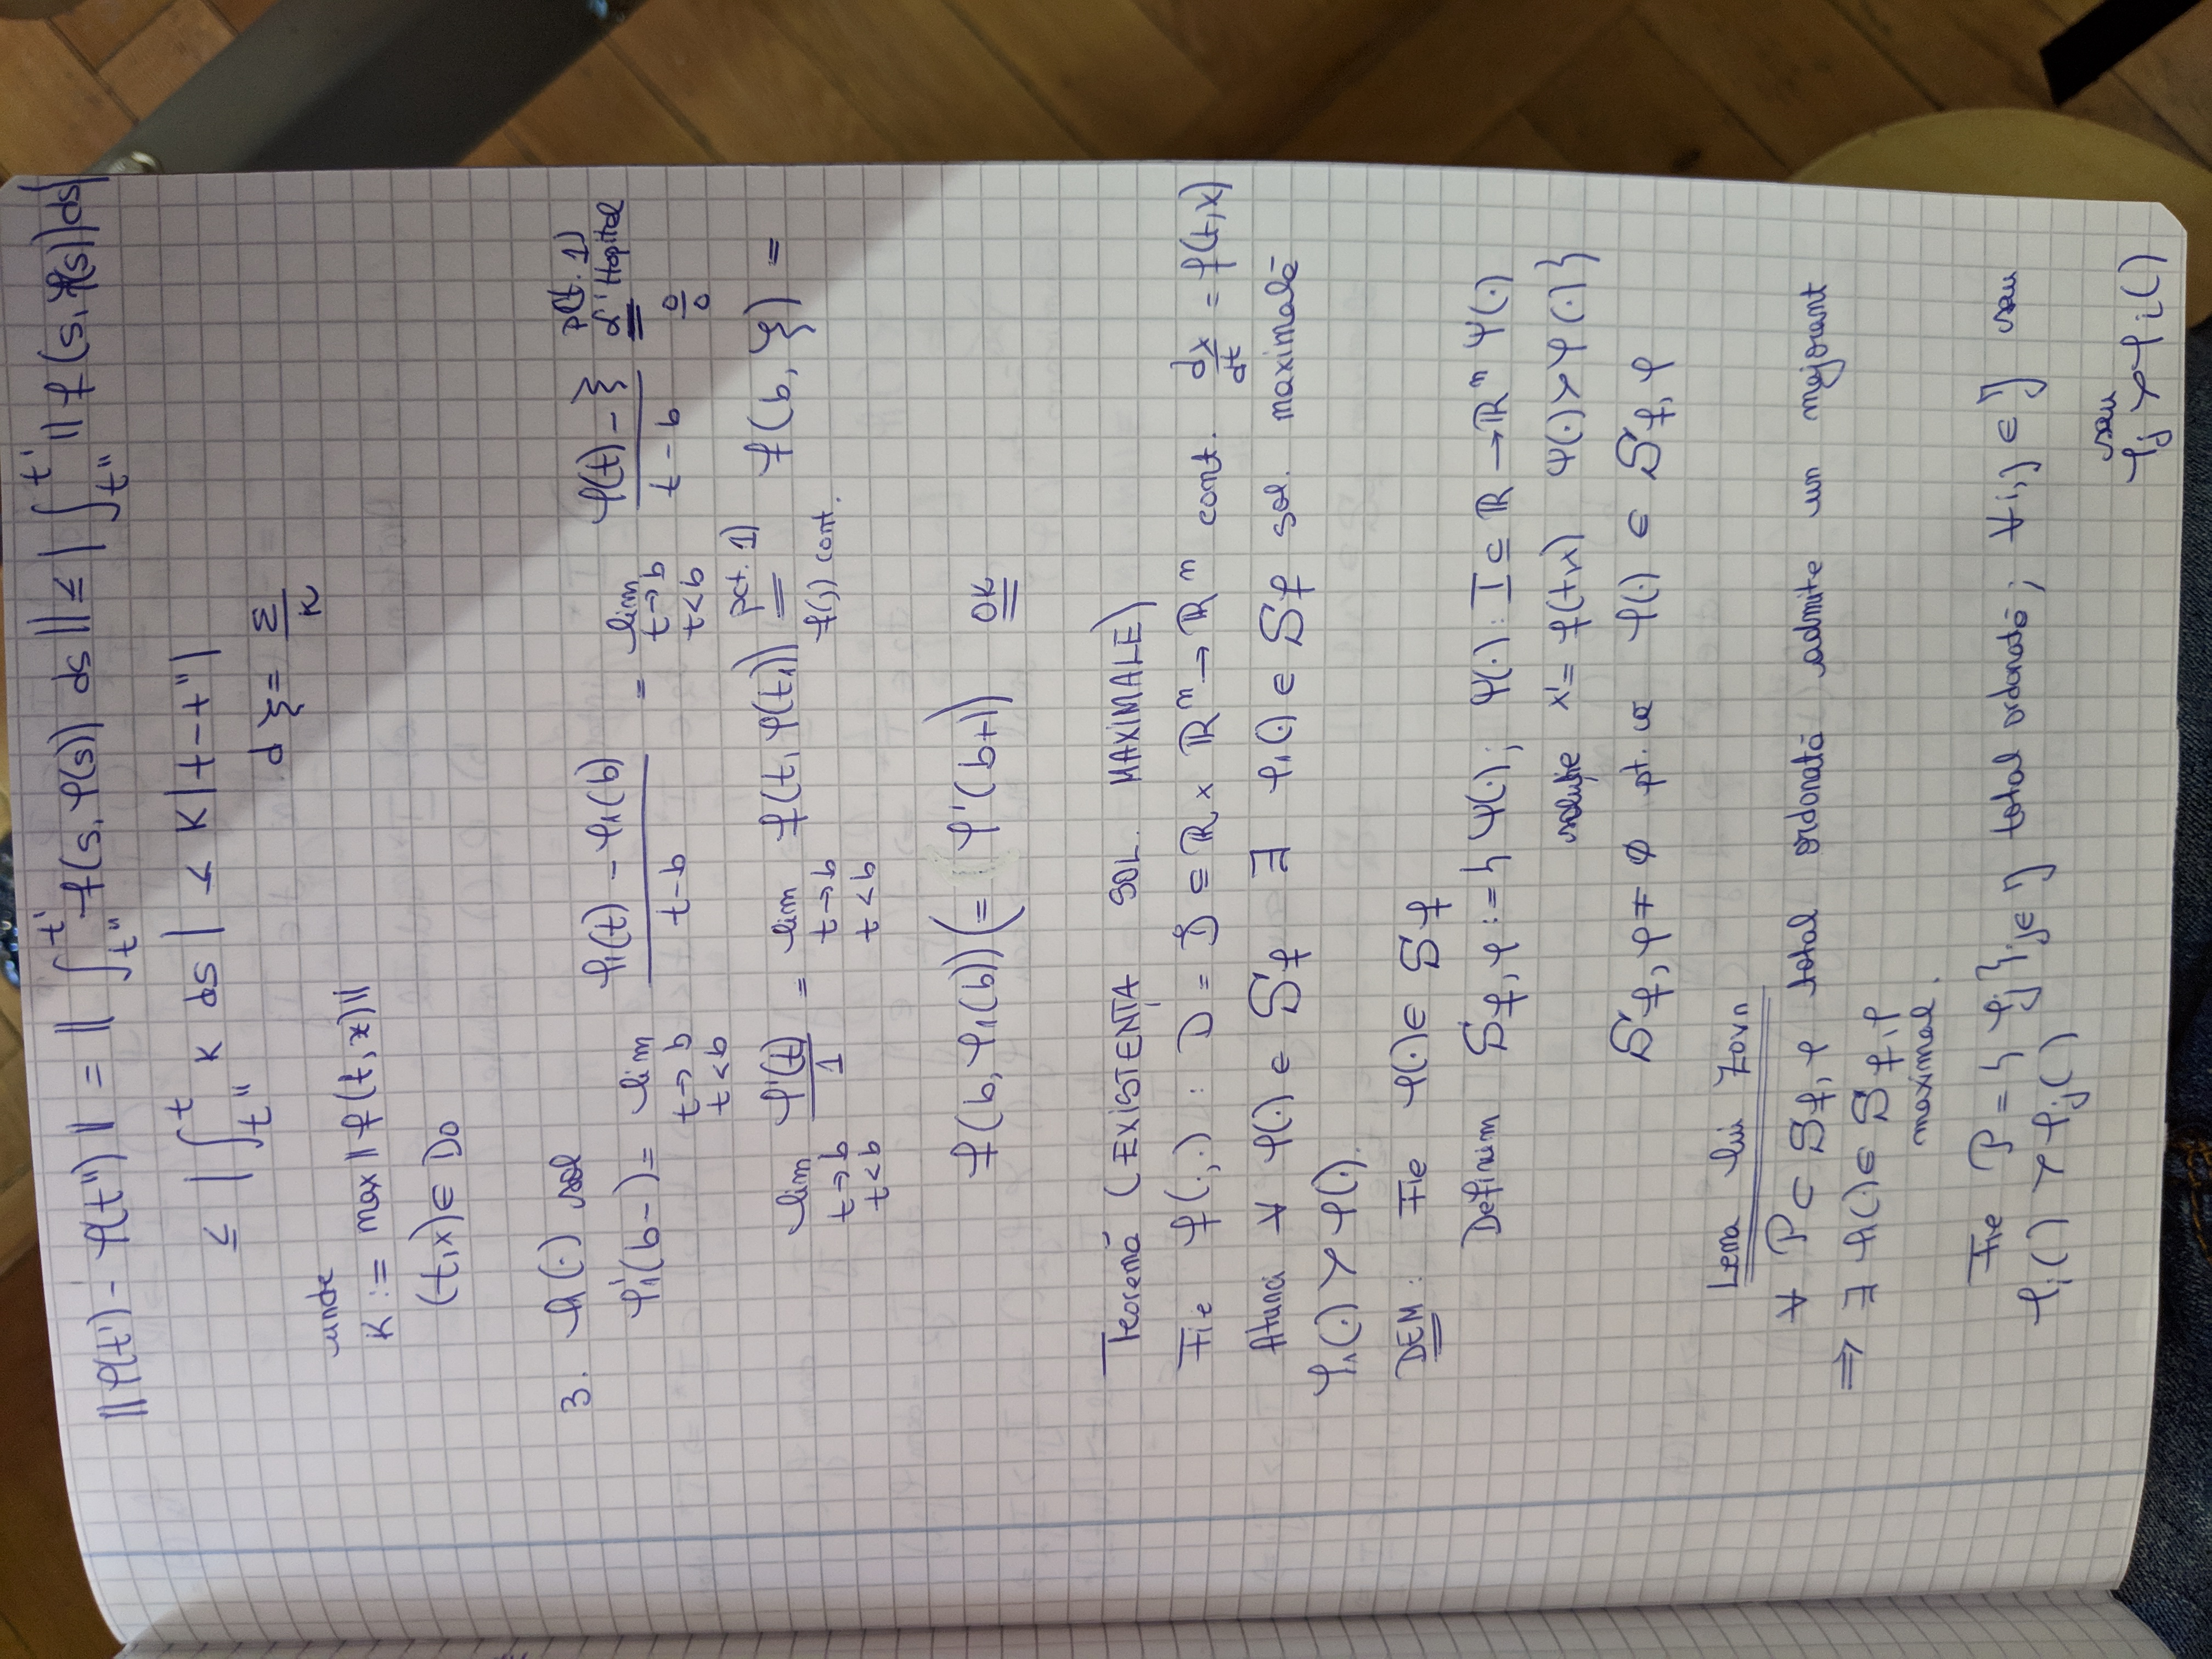 ||φ(t') - φ(t")|| = || ∫_{t"}^{t'} f(s, φ(s)) ds || ≤ | ∫_{t"}^{t'} || f(s, φ(s)) ds |
≤ | ∫_{t"}^{t} K ds | ≤ K |t - t"|
d ξ = ε/K
unde
K := max || f(t, x) ||
(t,x) ∈ D0
3. φ1(·) sol
φ1'(b-) = lim_{t→b, t<b} (φ1(t) - φ1(b))/(t-b) = lim_{t→b, t<b} (φ(t) - ξ)/(t - b) = pct. 1) L'Hopital 0/0
lim_{t→b, t<b} φ'(t)/1 = lim_{t→b, t<b} f(t, φ(t)) = pct. 1) f(b, ξ) =
f(,) cont.
f(b, φ1(b)) (= φ'(b+)) OK
Teoremă (EXISTENȚA SOL. MAXIMALE)
Fie f(·,·) : D = D̊ ⊆ ℝ × ℝ^n → ℝ^n cont. dx/dt = f(t,x)
Atunci ∀ φ(·) ∈ S_f ∃ φ1(·) ∈ S_f sol. maximală
φ1(·) ≻ φ(·).
DEM : Fie φ(·) ∈ S_f
Definim S_{f,φ} := { Ψ(·); Ψ(·) : I ⊂ ℝ → ℝ^n Ψ(·)
soluție x' = f(t,x) Ψ(·) ≻ φ(·) }
S_{f,φ} ≠ ∅ pt. că φ(·) ∈ S_{f,φ}
Lema lui Zorn
∀ P ⊂ S_{f,φ} total ordonată admite un majorant
⇒ ∃ φ1(·) ∈ S_{f,φ}
maximal.
Fie P = { φj }_{j∈J} total ordonată; ∀ i,j ∈ J sau
φi() ≻ φj()
sau
φj ≻ φi()